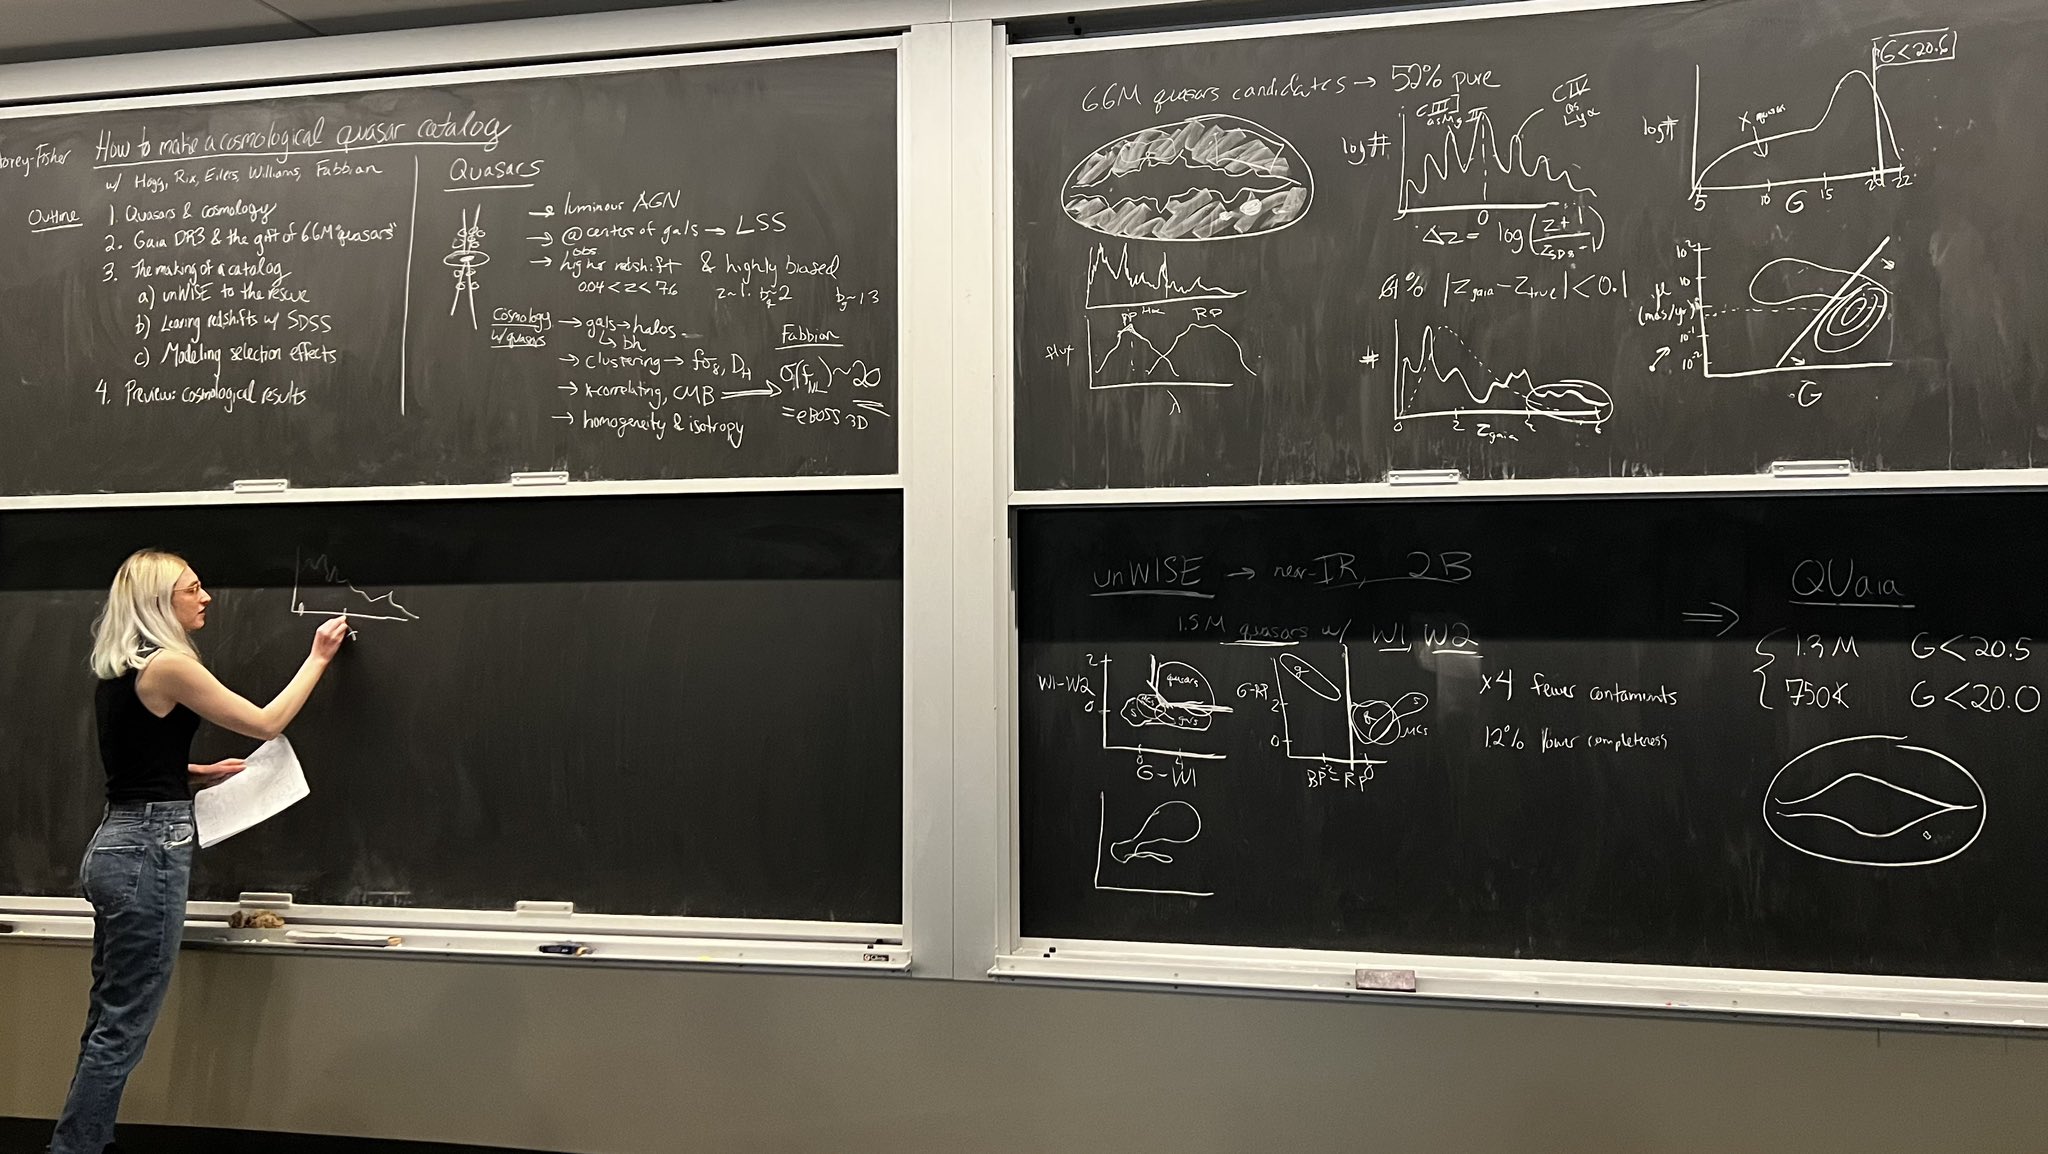 orey-Fisher
How to make a cosmological quasar catalog
w/ Hogg, Rix, Eilers, Williams, Fabbian
Outline
1. Quasars & cosmology
2. Gaia DR3 & the gift of 6.6M "quasars"
3. The making of a catalog
a) unWISE to the rescue
b) Learing redshifts w/ SDSS
c) Modeling selection effects
4. Preview: cosmological results
Quasars
→ luminous AGN
→ @ centers of gals → LSS
obs
→ higher redshift & highly biased
0.04 < z < 7.6
z~1: b_q~2
b_g~1.3
Cosmology
w/ quasars
→ gals → halos
↳ bh
→ clustering → fσ8, D_H
→ x-correlating, CMB
→ homogeneity & isotropy
Fabbian
σ(f_NL) ~ 20
= eBOSS 3D
6.6M quasars candidates → 52% pure
BP
RP
flux
λ
CIII]
as Mg II
CIV
as
Lyα
log #
0
Δz = log(z+1 / z_SDSS-1)
61% |z_gaia - z_true| < 0.1
#
0 2 4 6
z_gaia
G<20.5
log #
x quasars
5 10 15 20 22
G
10²
10
μ
(mas/yr)
10⁻¹
10⁻²
G
unWISE → near-IR, 2B
1.5M quasars w/ W1, W2
W1-W2
2
0
quasars
s
gals
G-W1
G-RP
2
0
g
q
s
MCs
BP-RP
x4 fewer contaminants
1.2% lower completeness
⇒
QUaia
1.3M G<20.5
750K G<20.0